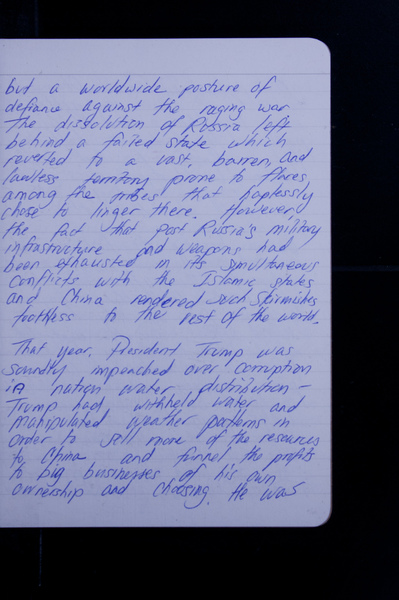 but a worldwide posture of
defiance against the raging war
The dissolution of Russia left
behind a failed state which
reverted to a vast, barren, and
lawless territory prone to flares
among the tribes that haplessly
chose to linger there. However,
the fact that post Russia's military
infrastructure and weapons had
been exhausted in its simultaneous
conflicts with the Islamic states
and China rendered such skirmishes
toothless to the rest of the world.
That year, President Trump was
soundly impeached over corruption
in nation water distribution –
Trump had withheld water and
manipulated weather patterns in
order to sell more of the resources
to China and funnel the profits
to big businesses of his own
ownership and choosing. He was